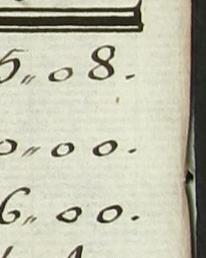 5„ 08.
0„ 00.
6„ 00.